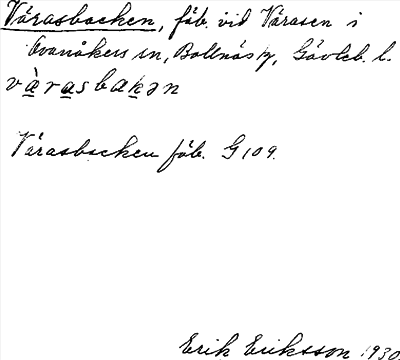 Vårasbacken, fäb. vid Vårasen i
Ovanåkers sn, Bollnäs tg, Gävleb. l.
vàrasbakən
Vårasbacken fäb. G 109.
Erik Eriksson 1930.